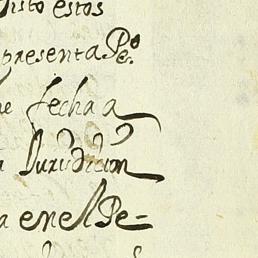 Visto estos
presenta P.º
fecha a
Jurisdicion
a en el Pe=